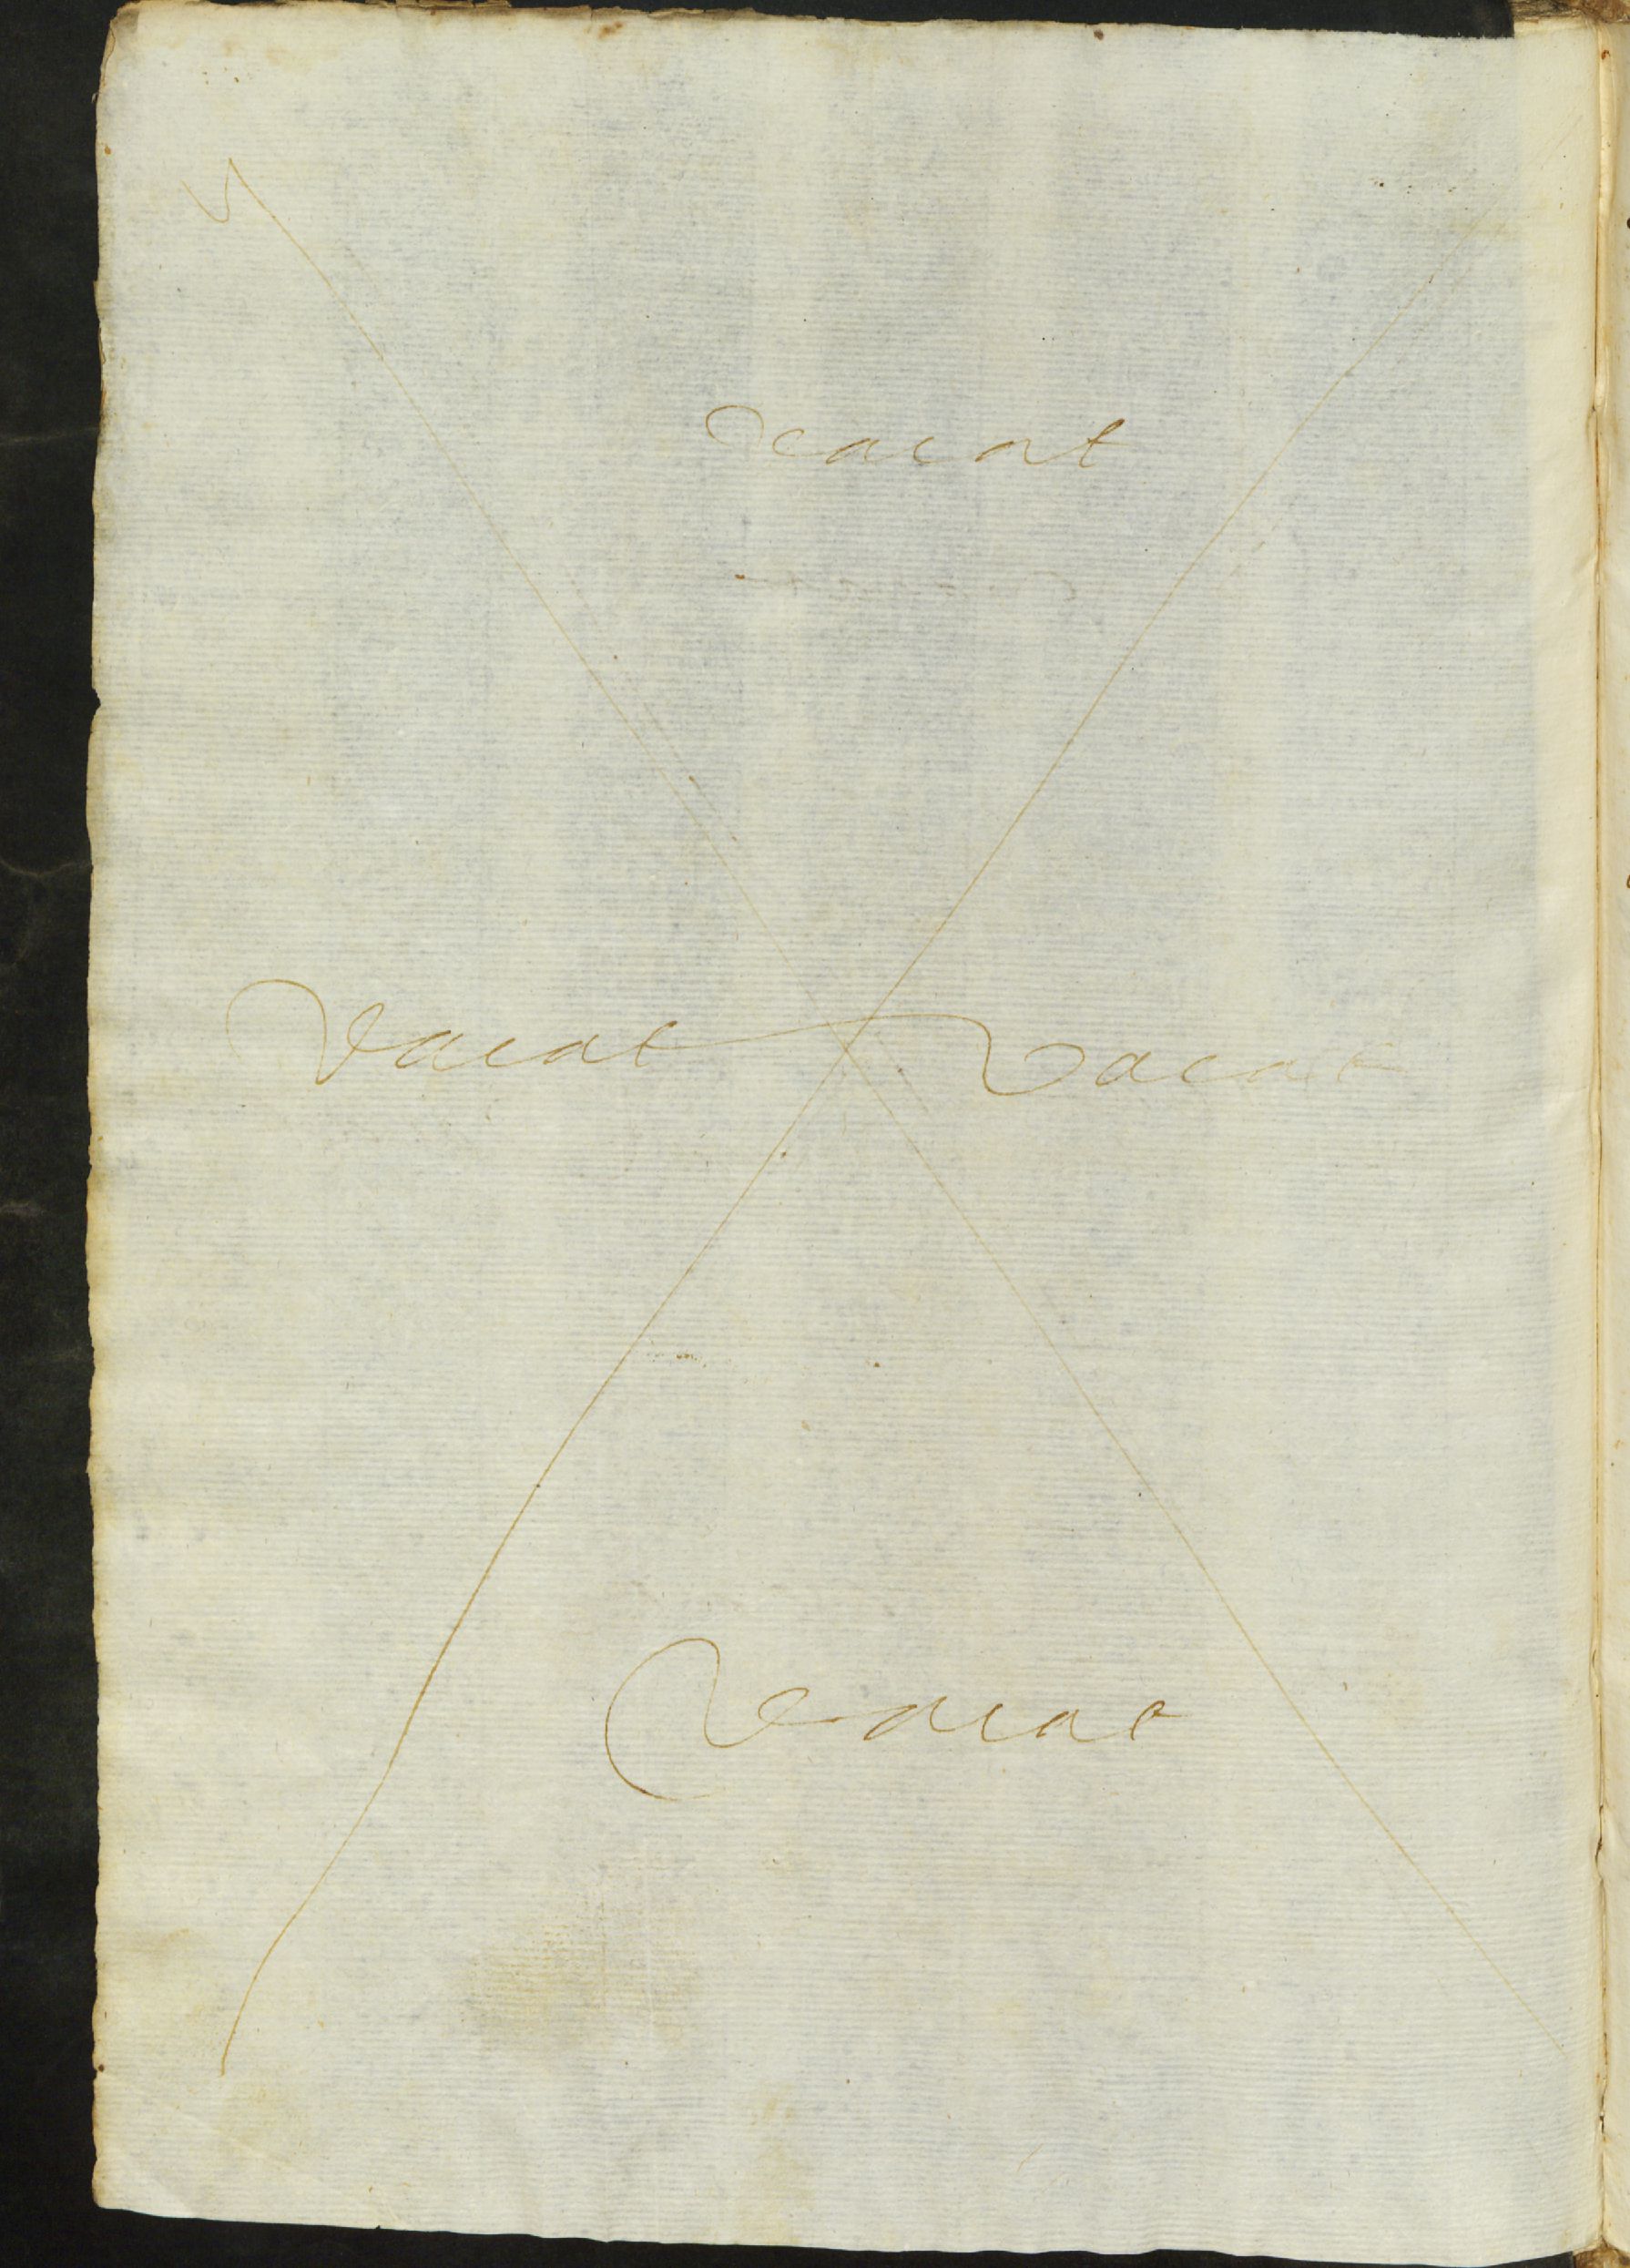 vacat
vacat vacat
vacat